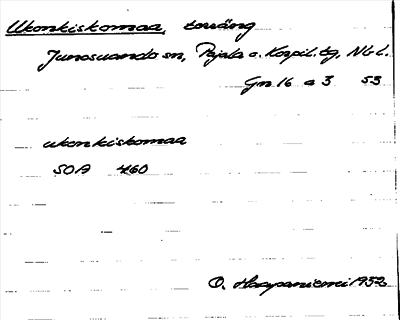 Ukonkiskomaa, torräng
Junosuando sn, Pajala o. Korpil. tg, Nb l.
Gn 16 a 3 53
ukonkiskomaa
SOA 460
O. Haapaniemi 1952